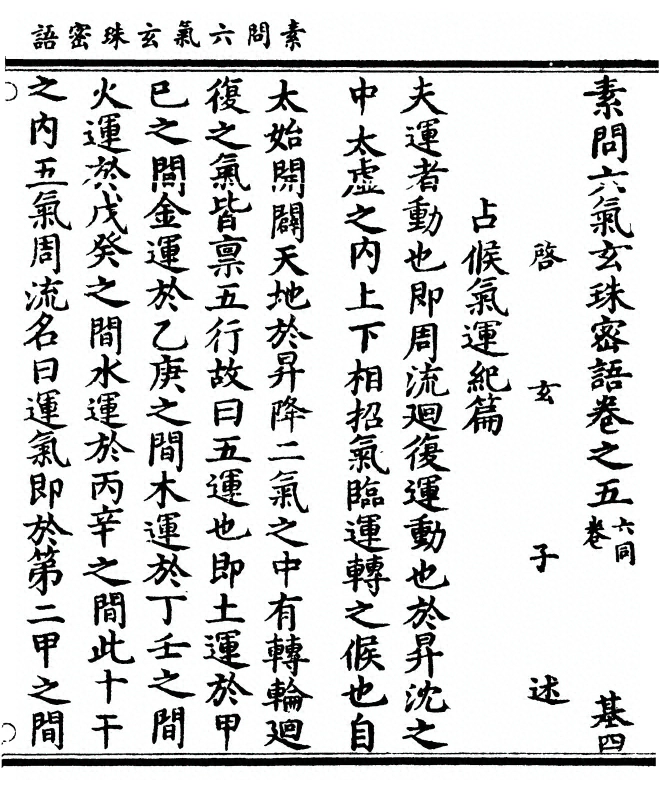 素問六氣玄珠密語
素問六氣玄珠密語卷之五 六同卷 基四
啓玄子述
占候氣運紀篇
夫運者動也即周流廻復運動也於昇沈之
中太虛之内上下相招氣臨運轉之候也自
太始開闢天地於昇降二氣之中有轉輪廻
復之氣皆禀五行故曰五運也即土運於甲
巳之間金運於乙庚之間木運於丁壬之間
火運於戊癸之間水運於丙辛之間此十干
之内五氣周流名曰運氣即於第二甲之間